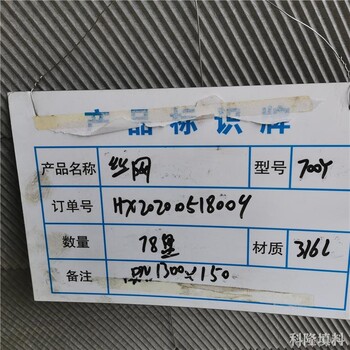 产品标识牌
产品名称 丝网 型号 700Y
订单号 HX20200518004
数量 18盘 材质 316L
备注 DN1300×150
科隆填料